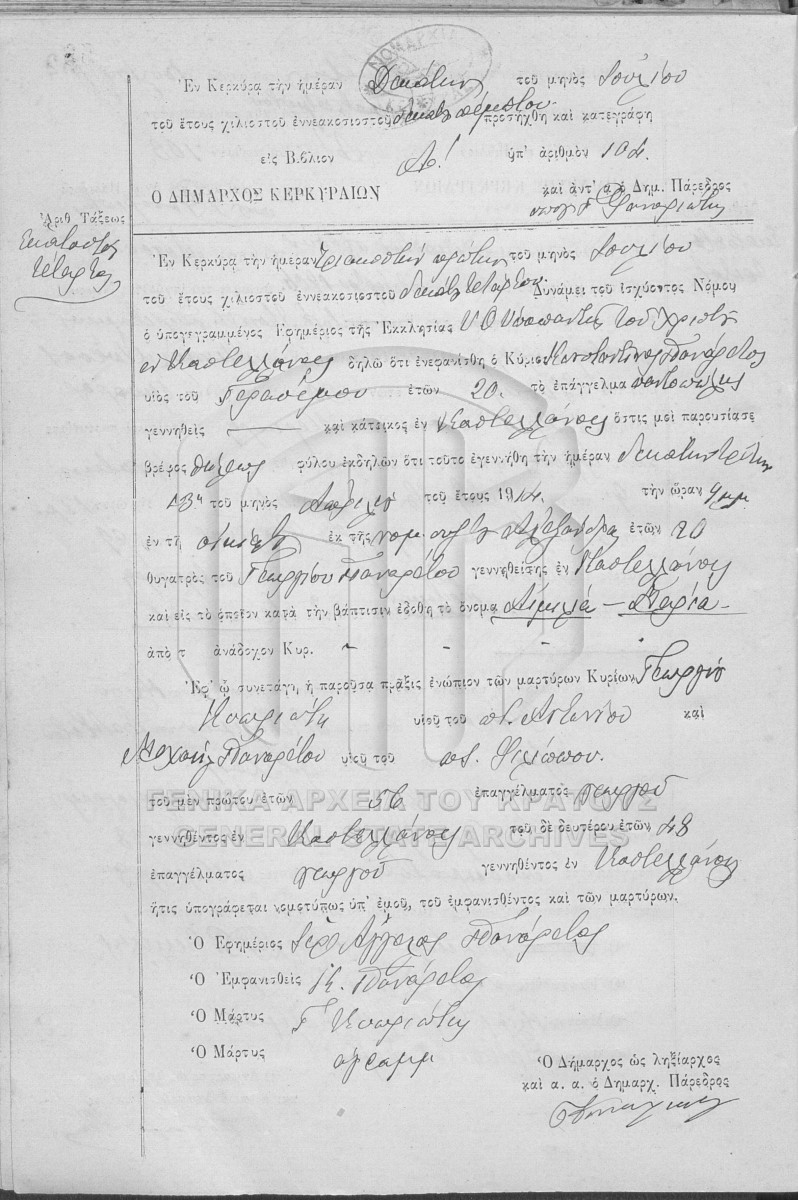 ΝΟΜΑΡΧΙΑ
Ἐν Κερκύρᾳ τὴν ἡμέραν Δεκάτην τοῦ μηνὸς Ἰουλίου
τοῦ ἔτους χιλιοστοῦ ἐννεακοσιοστοῦ δεκάτου πέμπτου προσήχθη καὶ κατεγράφη
εἰς Βιβλίον Αʹ ὑπ' ἀριθμὸν 104.
Ο ΔΗΜΑΡΧΟΣ ΚΕΡΚΥΡΑΙΩΝ
καὶ ἀντ' α. ὁ Δημ. Πάρεδρος
Ἀριθ Τάξεως
Ἑκατοστὸς
τέταρτος
Ἐν Κερκύρᾳ τὴν ἡμέραν τριακοστὴν πρώτην τοῦ μηνὸς Ἰουλίου
τοῦ ἔτους χιλιοστοῦ ἐννεακοσιοστοῦ δεκάτου τετάρτου Δυνάμει τοῦ ἰσχύοντος Νόμου
ὁ ὑπογεγραμμένος Ἐφημέριος τῆς Ἐκκλησίας Υ.Θ. Ὑπαπαντῆς τοῦ Χριστοῦ
ἐν Καστελλάνοις δηλῶ ὅτι ἐνεφανίσθη ὁ Κύριος Κωνσταντῖνος Πανάρετος
υἱὸς τοῦ Γερασίμου ἐτῶν 20. τὸ ἐπάγγελμα παντοπώλης
γεννηθεὶς — καὶ κάτοικος ἐν Καστελλάνοις ὅστις μοὶ παρουσίασε
βρέφος θήλεος φύλου ἐκδηλῶν ὅτι τοῦτο ἐγεννήθη τὴν ἡμέραν δεκάτην τρίτην
13ην τοῦ μηνὸς Ἀπριλίου τοῦ ἔτους 1914. τὴν ὥραν 9 μμ
ἐν τῇ οἰκίᾳ ἐκ τῆς νομ. συζ. Ἀλεξάνδρας ἐτῶν 20
θυγατρὸς τοῦ Γεωργίου Πανάρετου γεννηθείσης ἐν Καστελλάνοις
καὶ εἰς τὸ ὁποῖον κατὰ τὴν βάπτισιν ἐδόθη τὸ ὄνομα Αἰμιλία - Μαρία -
ἀπὸ τ ἀνάδοχον Κυρ. - - - -
Ἐφ' ᾧ συνετάγη ἡ παροῦσα πρᾶξις ἐνώπιον τῶν μαρτύρων Κυρίων Γεωργίου
Κυπριώτη υἱοῦ τοῦ π. Ἀντωνίου καὶ
Μιχαὴλ Πανάρετου υἱοῦ τοῦ π. Φιλίππου.
τοῦ μὲν πρώτου ἐτῶν ἐπαγγέλματος γεωργοῦ
γεννηθέντος ἐν Καστελλάνοις τοῦ δὲ δευτέρου ἐτῶν 48
ἐπαγγέλματος γεωργοῦ γεννηθέντος ἐν Καστελλάνοις
ἥτις ὑπογράφεται νομοτύπως ὑπ' ἐμοῦ, τοῦ ἐμφανισθέντος καὶ τῶν μαρτύρων.
Ὁ Ἐφημέριος Ἱερ. Ἄγγελος Πανάρετος
Ὁ Ἐμφανισθεὶς Κ. Πανάρετος
Ὁ Μάρτυς Γ Κυπριώτης
Ὁ Μάρτυς ἀγραμμ
Ὁ Δήμαρχος ὡς ληξίαρχος
καὶ α. α. ὁ Δημαρχ. Πάρεδρος
ΓΕΝΙΚΑ ΑΡΧΕΙΑ ΤΟΥ ΚΡΑΤΟΥΣ
GENERAL STATE ARCHIVES